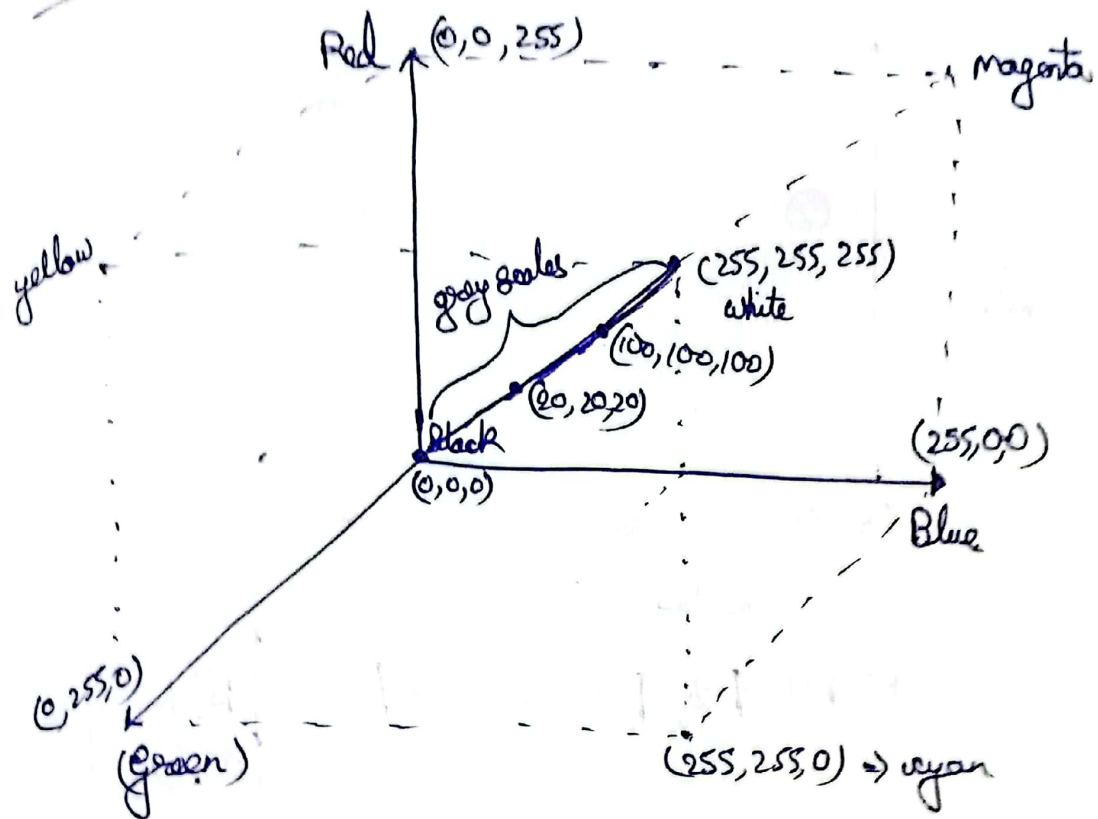 Red (0,0,255)
Magenta
yellow
gray scales
(255,255,255)
white
(100,100,100)
(20,20,20)
black
(0,0,0)
(255,0,0)
Blue
(0,255,0)
(Green)
(255,255,0) => cyan